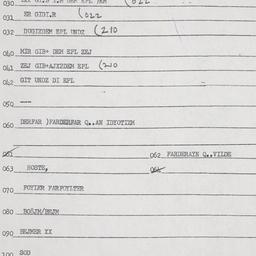 030
031 ER GIDI.R (022
032 DUGIZDEM EPL UNDZ (210
040 MIR GIB+ DEM EPL ZEJ
041 ZEJ GIB+AJXZDEM EPL (210
042 GIT UNDZ DI EPL
050 ---
060 DERFAR )FARDERFAR Q..AN IDYOTIZM
061 062 FARDERAYN Q..VILDE
063 HOSTE, 064
070 FOYLER FARFOYLTER
080 BOëJM/BEJM
090 BEJMER XX
100 SOD